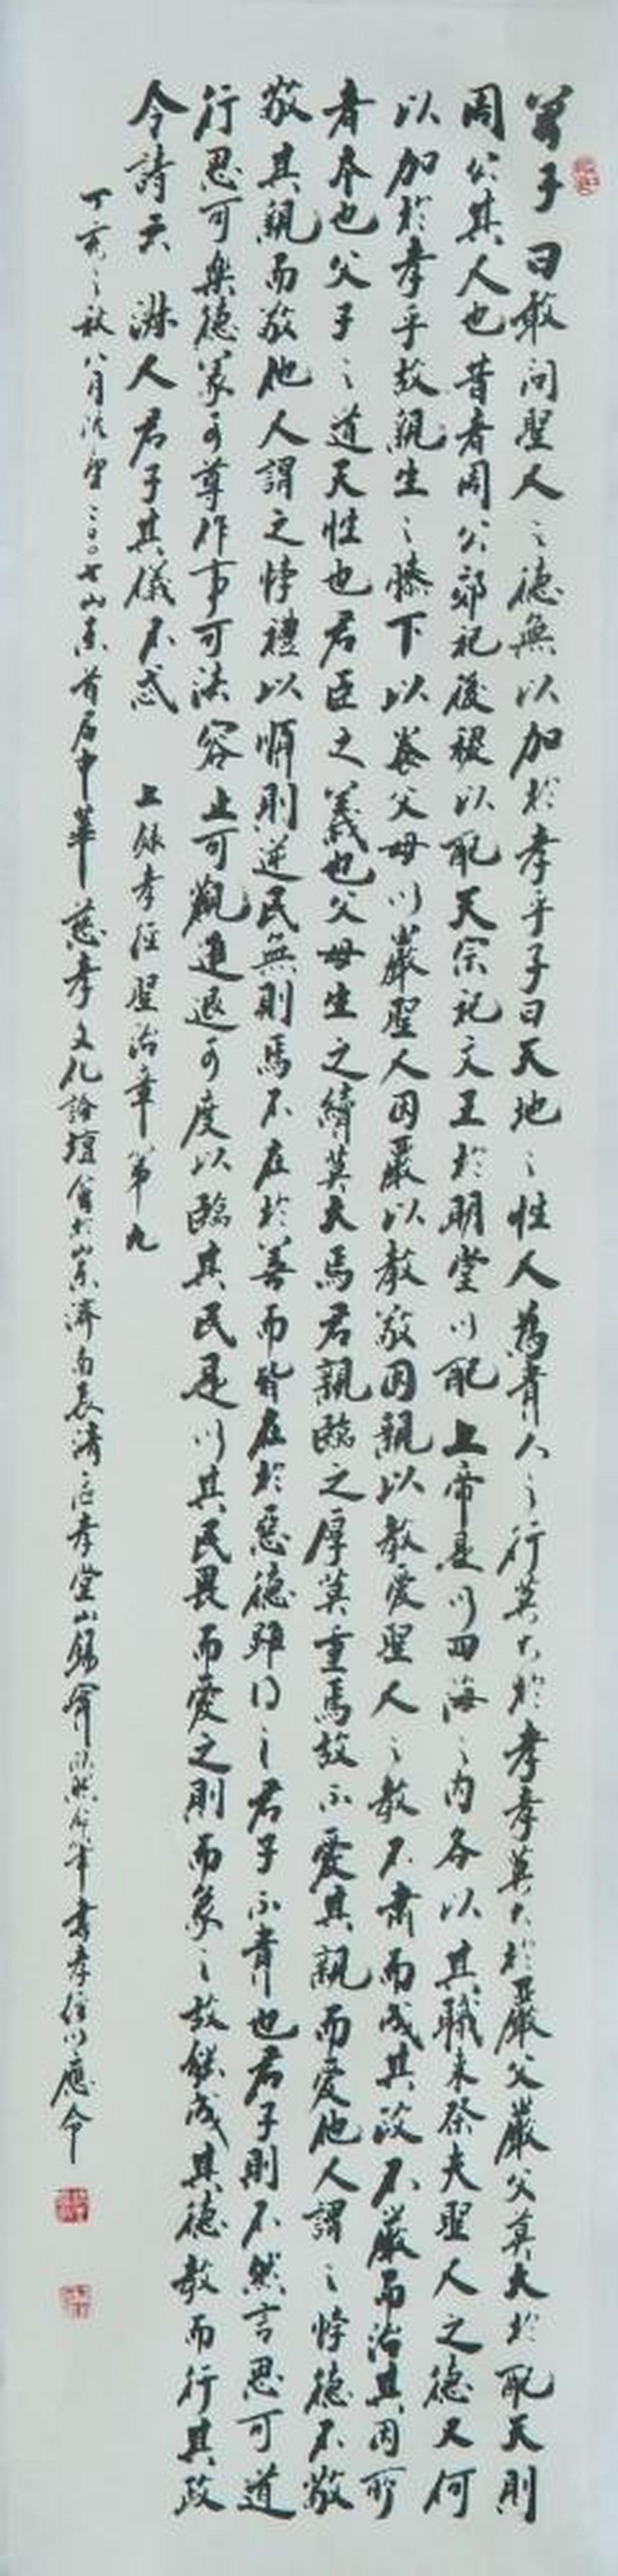 曾子曰敢问聖人之德無以加於孝乎子曰天地之性人為貴人之行莫大於孝孝莫大於嚴父嚴父莫大於配天則
周公其人也昔者周公郊祀後稷以配天宗祀文王於明堂以配上帝是以四海之内各以其職来祭夫聖人之德又何
以加於孝乎故親生之膝下以養父母以嚴聖人因嚴以教敬因親以教愛聖人之教不肅而成其政不嚴而治其因所
者本也父子之道天性也君臣之義也父母生之續莫大焉君親臨之厚莫重焉故不愛其親而愛他人謂之悖德不敬
敬其親而敬他人謂之悖禮以順則逆民無則焉不在於善而皆在於惡德雖得之君子不貴也君子則不然言思可道
行思可樂德義可尊作事可法容止可觀進退可度以臨其民是以其民畏而愛之則而象之故能成其德教而行其政
令詩云淋人君子其儀不忒 上録孝經聖治章第九
丁亥之秋八月 二〇〇七山东首届中華慈孝文化論壇會於山东濟南長清區孝堂山 書孝經以應命